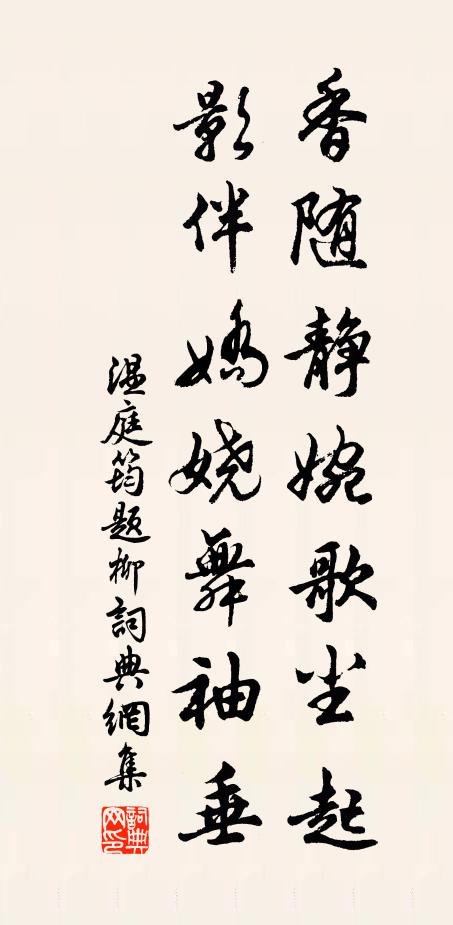 香随静婉歌尘起
影伴娇娆舞袖垂
温庭筠题柳词典網集
詞典网印